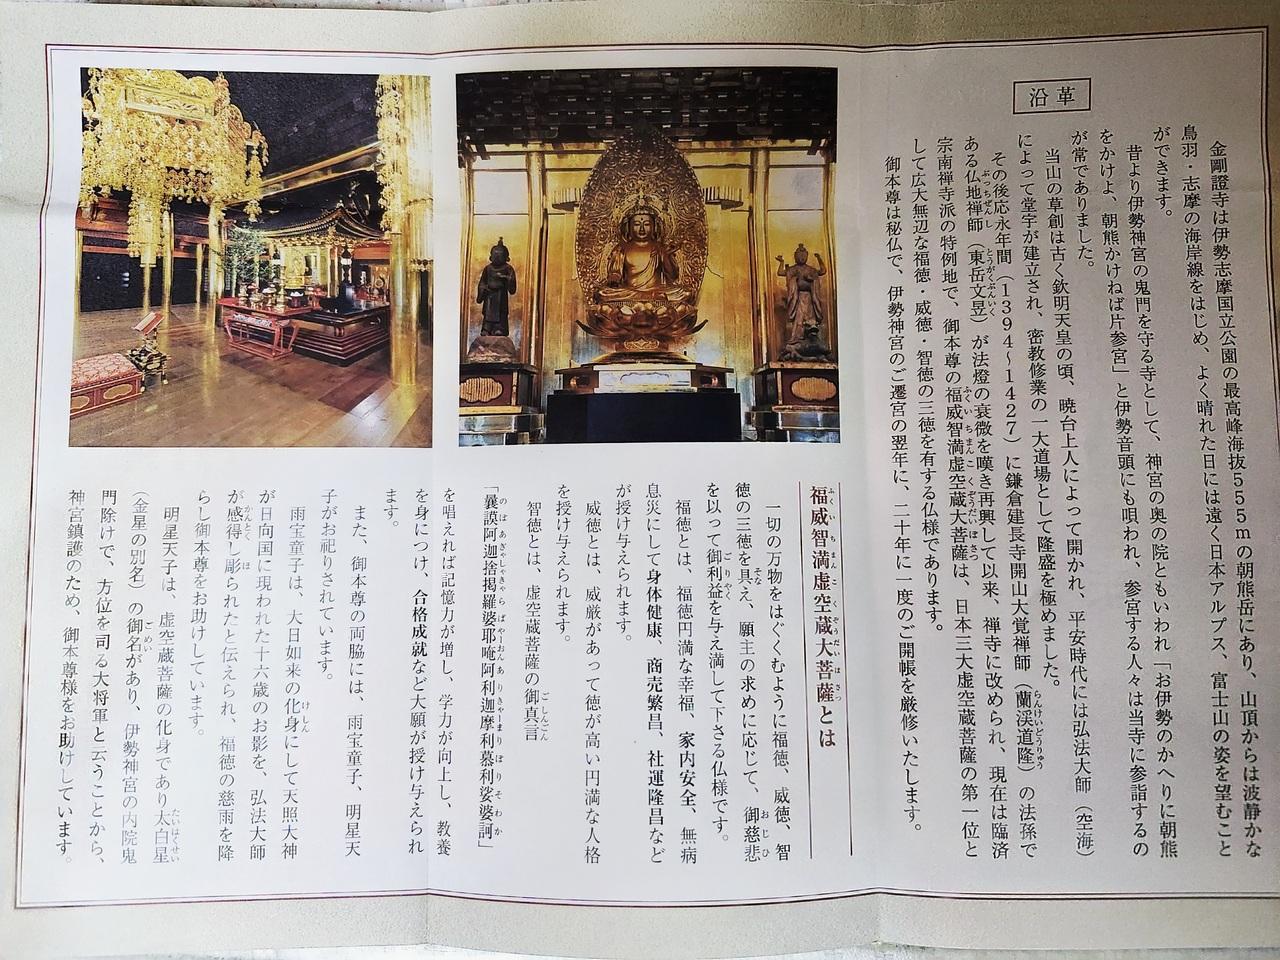 沿革
金剛證寺は伊勢志摩国立公園の最高峰海抜555mの朝熊岳にあり、山頂からは波静かな
鳥羽・志摩の海岸線をはじめ、よく晴れた日には遠く日本アルプス、富士山の姿を望むこと
ができます。
昔より伊勢神宮の鬼門を守る寺として、神宮の奥の院ともいわれ「お伊勢のかへりに朝熊
をかけよ、朝熊かけねば片参宮」と伊勢音頭にも唄われ、参宮する人々は当寺に参詣するの
が常でありました。
当山の草創は古く欽明天皇の頃、暁台上人によって開かれ、平安時代には弘法大師（空海）
によって堂宇が建立され、密教修業の一大道場として隆盛を極めました。
その後応永年間（1394～1427）に鎌倉建長寺開山大覚禅師（蘭渓道隆）の法孫で
ある仏地禅師（東岳文昱）が法燈の衰微を嘆き再興して以来、禅寺に改められ、現在は臨済
宗南禅寺派の特例地で、御本尊の福威智満虚空蔵大菩薩は、日本三大虚空蔵菩薩の第一位と
して広大無辺な福徳・威徳・智徳の三徳を有する仏様であります。
御本尊は秘仏で、伊勢神宮のご遷宮の翌年に、二十年に一度のご開帳を厳修いたします。
福威智満虚空蔵大菩薩とは
一切の万物をはぐくむように福徳、威徳、智
徳の三徳を具え、願主の求めに応じて、御慈悲
を以って御利益を与え満して下さる仏様です。
福徳とは、福徳円満な幸福、家内安全、無病
息災にして身体健康、商売繁昌、社運隆昌など
が授け与えられます。
威徳とは、威厳があって徳が高い円満な人格
を授け与えられます。
智徳とは、虚空蔵菩薩の御真言
「曩謨阿迦捨掲羅婆耶唵阿利迦摩利慕利娑婆訶」
を唱えれば記憶力が増し、学力が向上し、教養
を身につけ、合格成就など大願が授け与えられ
ます。
また、御本尊の両脇には、雨宝童子、明星天
子がお祀りされています。
雨宝童子は、大日如来の化身にして天照大神
が日向国に現われた十六歳のお影を、弘法大師
が感得し彫られたと伝えられ、福徳の慈雨を降
らし御本尊をお助けしています。
明星天子は、虚空蔵菩薩の化身であり太白星
（金星の別名）の御名があり、伊勢神宮の内院鬼
門除けで、方位を司る大将軍と云うことから、
神宮鎮護のため、御本尊様をお助けしています。